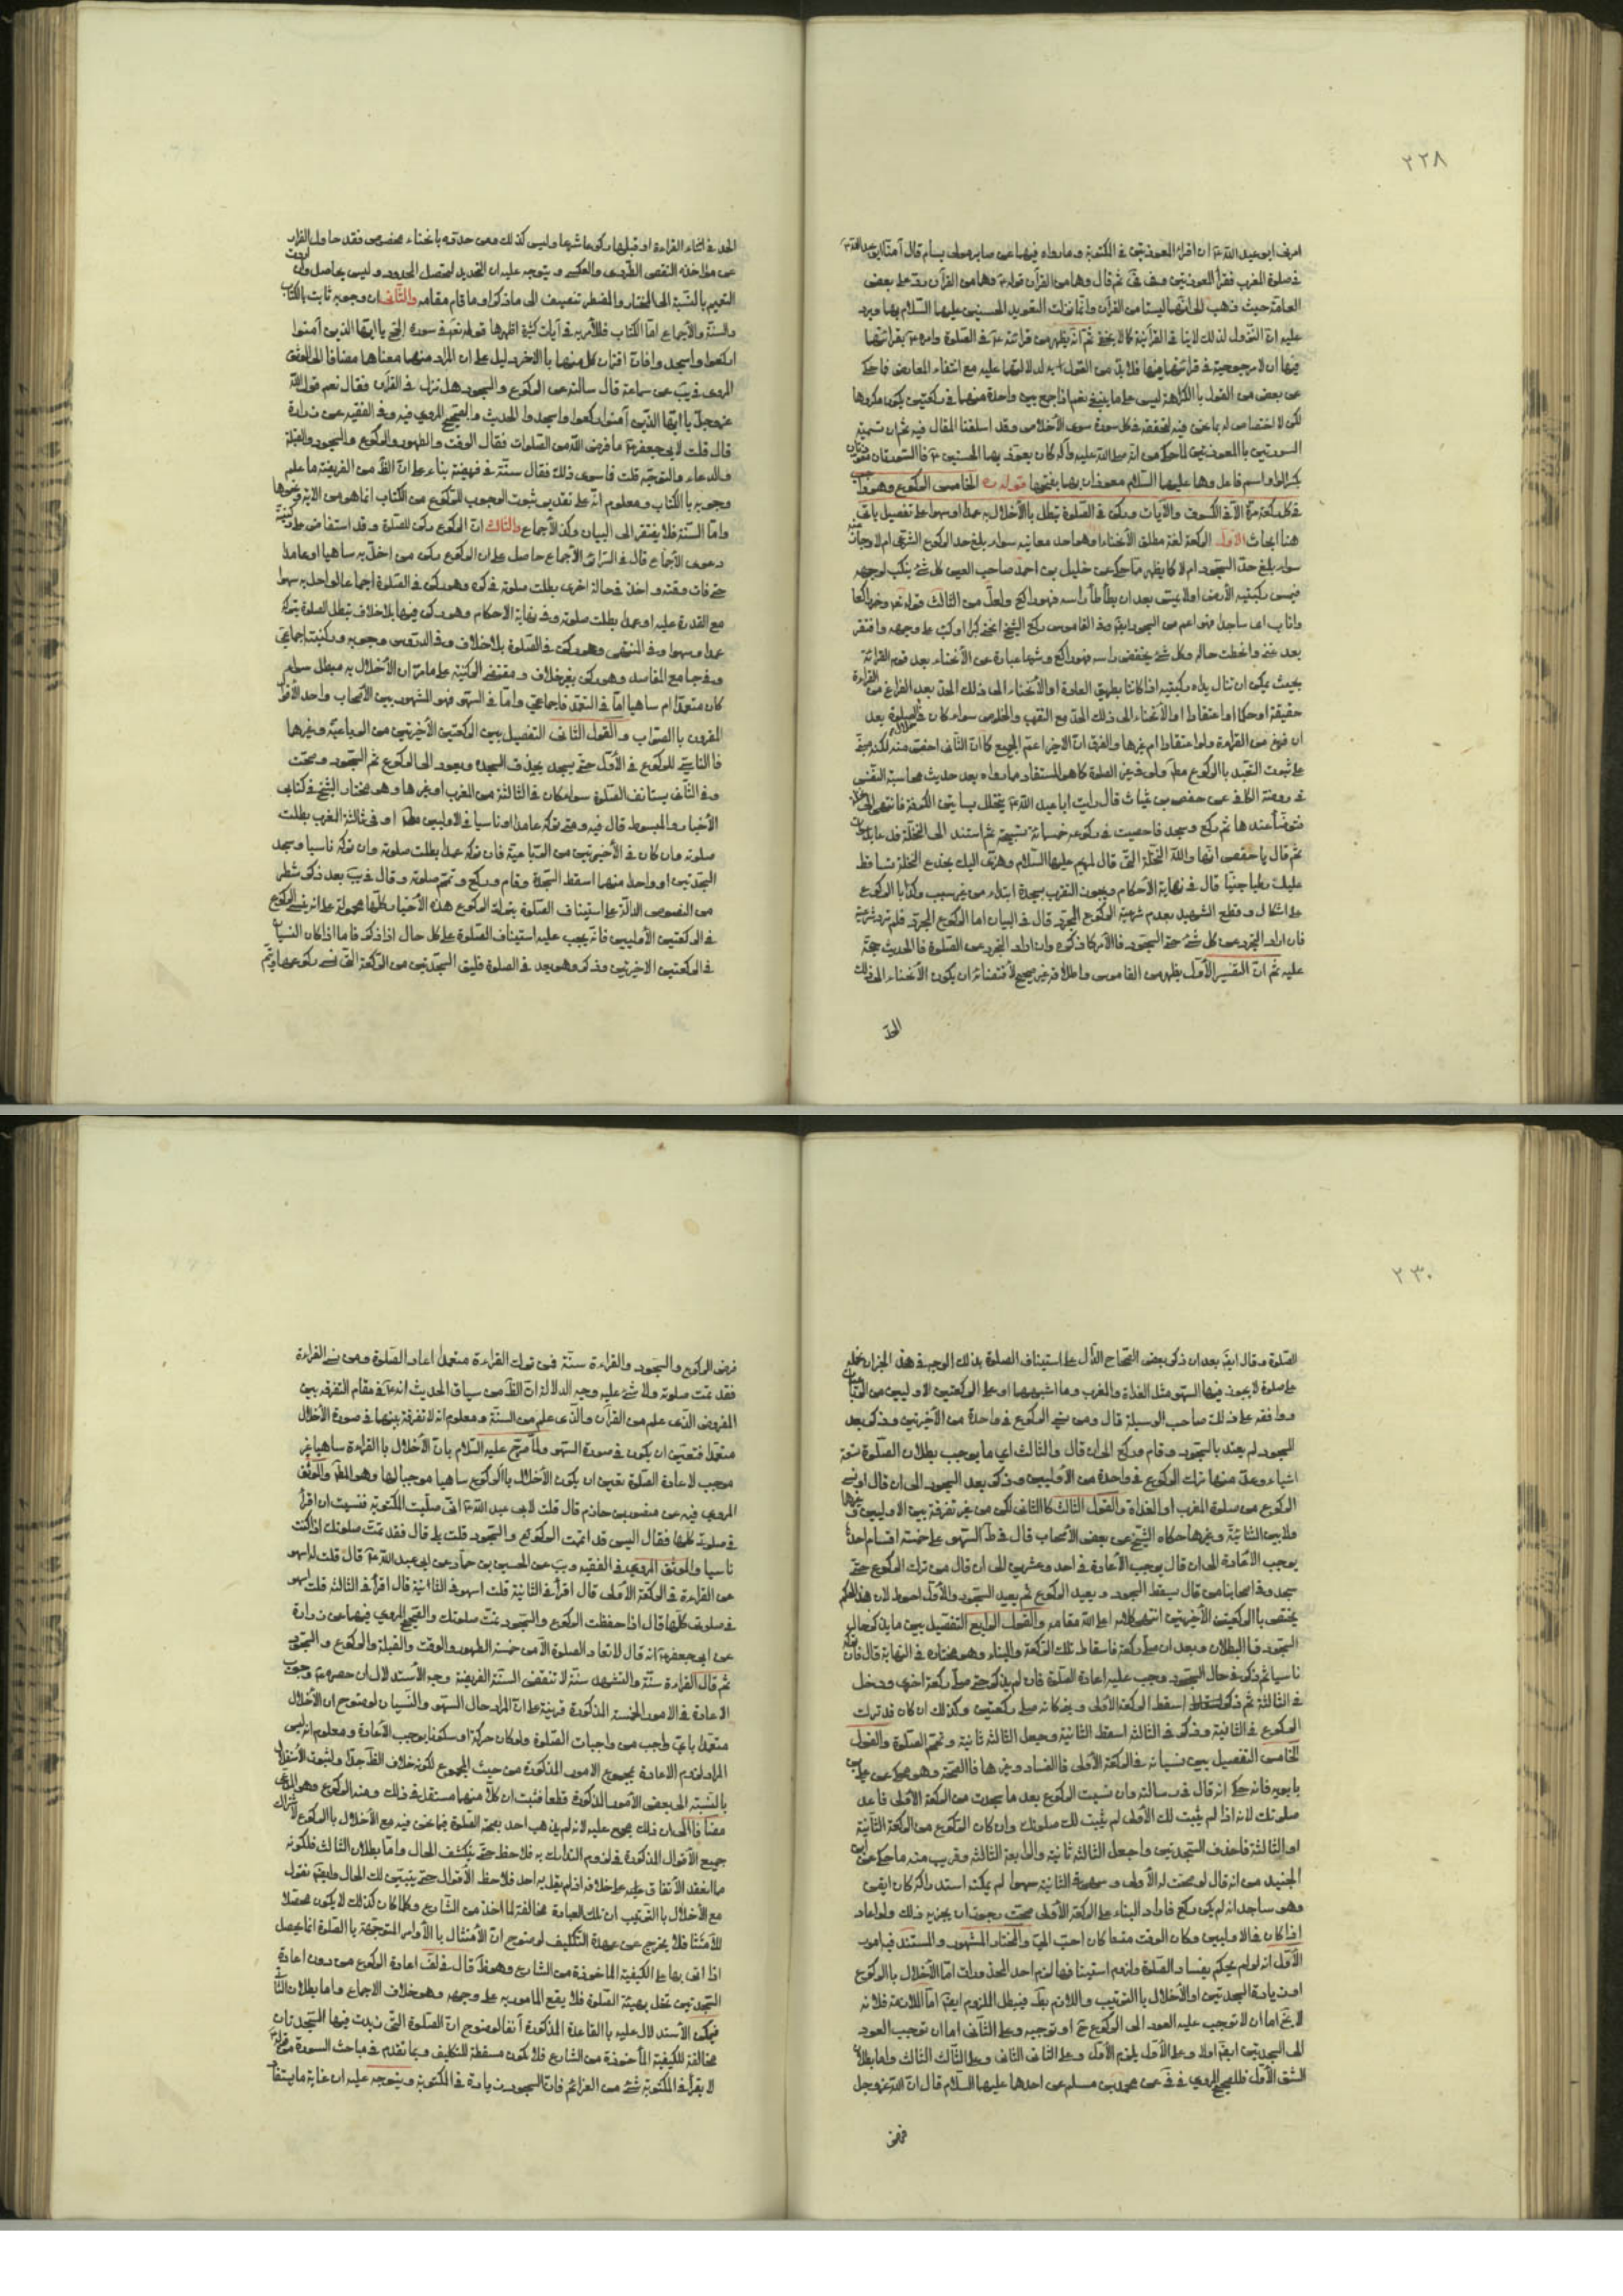 ٢٢٨
امرني ابو عبد الله ع ان اقرأ المعوذتين في المكتوبة وما رواه فيهما عن صابر مولى بسام قال امنا ابو عبد الله ع
في صلوة المغرب فقرأ المعوذتين ثم قال وهما من القرآن قوله ع وهما من القرآن رد على بعض
العامة حيث ذهب الى انهما ليستا من القرآن وانما نزلت التعويذ الحسنين عليهما السلام بها ويرد
عليه ان النزول لذلك لا ينافي القرآنية كما لا يخفى ثم انه يظهر من قرائته ع في الصلوة وامره ع بقرائتهما
فيها ان لا مرجوحية في قرائتهما فيها فلا بد من القول به لدلالتها عليه مع انتفاء المعارض فما حكي
عن بعض من القول بالكراهة ليس على ما ينبغي نعم اذا جمع بين واحدة منهما في ركعتين يكون مكروها
لكن لا اختصاص له بما نحن فيه لتحققه في كل سورة سوى الأخلاص وقد اسلفنا المقال فيه ثم ان تسمية
السورتين بالمعوذتين لما حكي من انه صلى الله عليه وآله كان يعوذ بهما الحسنين ع فالسورتان معوذتان
بكسر الواو اسم فاعل وهما عليهما السلام معوذان بهما بفتحها قوله ره الخامس الركوع وهو واجب
في كل ركعة مرة الا في الكسوف والآيات وركن في الصلوة تبطل بالأخلال به عمدا او سهوا على تفصيل يأتي
هنا ابحاث الأول الركعة لغة مطلق الأنحناء وهو احد معانيه سواء بلغ حد الركوع الشرعي ام لا وجاز منه
سواء بلغ حد السجود ام لا كما يظهر مما حكي عن خليل بن احمد صاحب العين كل شئ ينكب لوجهه
فيمس ركبتيه الأرض او لا يمس بعد ان يطأطأ رأسه فهو راكع ولعل من الثالث قوله تعالى وخر راكعا
واناب اي ساجدا فهو اعم من السجود ايضا وفي القاموس ركع الشيخ انحنى كبرا او كب على وجهه وافتقر
بعد غنى وانحطت حاله وكل شئ يخفض رأسه فهو راكع وشرعا عبارة عن الأنحناء بعد قومة القرائة
بحيث يمكن ان تنال يداه ركبتيه اذا كانتا بطريق العادة او الأنحناء الى ذلك الحد بعد الفراغ من القراءة
حقيقة او حكما او اعتقادا او الأنحناء الى ذلك الحد مع التقرب والخلوص سواء كان في الصلوة بعد
ان فرغ من القراءة ولو اعتقادا ام غيرها والفرق ان الأخير اعم الجميع كما ان الثاني اخص منه لكنه مبني
على ثبوت التعبد بالركوع مطلقا ولو في غير الصلوة كما هو المستفاد مما رواه بعد حديث محاسبة النفس
في روضة الكافي عن حفص بن غياث قال رأيت ابا عبد الله ع يتخلل بساتين الكوفة فانتهى الى نخلة
فتوضأ عندها ثم ركع وسجد فاحصيت في ركوعه خمسمائة تسبيحة ثم استند الى النخلة فدعا بدعوات
ثم قال يا حفص انها والله النخلة التي قال لمريم عليها السلام وهزي اليك بجذع النخلة تساقط
عليك رطبا جنيا قال في نهاية الأحكام ويجوز التقرب بسجدة ابتداء من غير سبب وكذا بالركوع
على اشكال وقطع الشهيد بعدم شرعية الركوع المجرد قال في البيان اما الركوع المجرد فلم ترد شرعية
فان اراد المجرد عن كل شئ حتى السجود فالأمر كما ذكره وان اراد المجرد عن الصلوة فالحديث حجة
عليه ثم ان التفسير الأول يظهر من القاموس واطلاقه غير صحيح لأقتضائه ان يكون الأنحناء الى ذلك
الحد
الحد في اثناء القراءة او قبلها ركوعا شرعا وليس كذلك ومن حدّه بانحناء مخصوص فقد حاول الفرار
عن مؤاخذة النقض الطردي والعكسي ويتوجه عليه ان التحديد لتحصل المحدود وليس بحاصل وان اردت
التعميم بالنسبة الى المختار والمضطر تنضيف الى ما ذكر او ما قام مقامه والثاني ان وجوبه ثابت بالكتاب
والسنة والأجماع اما الكتاب فللأمر به في آيات كثيرة اظهرها قوله تعالى في سورة الحج يا ايها الذين آمنوا
اركعوا واسجدوا فان اقتران كل منهما بالآخر دليل على ان المراد منهما معناهما مضافا الى الموثق
المروي في يب عن سماعة قال سألته عن الركوع والسجود هل نزل في القرآن فقال نعم قول الله
عز وجل يا ايها الذين آمنوا اركعوا واسجدوا الحديث والصحيح المروي فيه وفي الفقيه عن زرارة
قال قلت لأبي جعفر ع ما فرض الله من الصلوات فقال الوقت والطهور والركوع والسجود والقبلة
والدعاء والتوجه قلت فما سوى ذلك فقال سنة في فريضة بناء على ان الظاهر من الفريضة ما علم
وجوبه بالكتاب ومعلوم انه على تقدير ثبوت الوجوب للركوع من الكتاب انما هو من الآية ونحوها
واما السنة فلا يفتقر الى البيان وكذا الأجماع والثالث ان الركوع ركن للصلوة وقد استفاض على ركنيته
دعوى الأجماع قال في السرائر الأجماع حاصل على ان الركوع ركن من اخل به ساهيا او عامدا
حتى فات وقته واخذ في حالة اخرى بطلت صلوته في كره وهو ركن في الصلوة اجماعا لو اخل به سهوا
مع القدرة عليه او عمدا بطلت صلوته وفي نهاية الأحكام وهو ركن فيها بلا خلاف تبطل الصلوة بتركه
عمدا وسهوا وفي المنتهى وهو ركن في الصلوة بلا خلاف وفي الدروس وجوبه وركنيته اجماعي
وفي جامع المقاصد وهو ركن بغير خلاف ومقتضى الركنية على ما مر ان الأخلال به مبطل سواء
كان متعمدا ام ساهيا اما في التعمد فاجماعي واما في السهو فهو المشهور بين الأصحاب واحد الأقوال
المقرون بالصواب والقول الثاني التفصيل بين الركعتين الأخيرتين من الرباعية وغيرها
فالناسي للركوع في الأول حتى يسجد يحذف السجدة ويعود الى الركوع ثم السجود وصحت
وفي الثاني يستأنف الصلوة سواء كان في الثالثة من المغرب او غيرها وهو مختار الشيخ في كتابي
الأخبار والمبسوط قال فيه ومتى تركه عامدا او ناسيا في الأوليين مطلقا او في ثالثة المغرب بطلت
صلوته وان كان في الأخيرتين من الرباعية فان تركه عمدا بطلت صلوته وان تركه ناسيا وسجد
السجدتين او واحدة منهما اسقط السجدة وقام وركع وتمم صلوته وقال في يب بعد ذكر شطر
من النصوص الدالة على استيناف الصلوة بترك الركوع هذه الأخبار كلها محمولة على انه نسي الركوع
في الركعتين الأوليين فانه يجب عليه استيناف الصلوة على كل حال اذا ذكر فاما اذا كان النسيان
في الركعتين الأخيرتين وذكر وهو بعد في الصلوة فليلق السجدتين من الركعة التي نسي ركوعها ويتم
٢٣٠
الصلوة وقال ايضا بعد ان ذكر بعض الصحاح الدال على استيناف الصلوة بذلك الوجه في هذا الخبر ان نحمله
على صلوة لا يجوز فيها السهو مثل الغداة والمغرب وما اشبههما او على الركعتين الأوليين من الرباعيات
ووافقه على ذلك صاحب الوسيلة قال ومن نسي الركوع في واحدة من الأخيرتين وذكر بعد
السجود لم يعتد بالسجود وقام وركع الى ان قال والثالث اي ما يوجب بطلان الصلوة تسعة
اشياء وعد منها ترك الركوع في واحدة من الأوليين وذكر بعد السجود الى ان قال او نسي
الركوع من صلوة المغرب او الغداة والقول الثالث كالثاني لكن من غير تفرقة بين الأوليين وغيرها
ولا بين الثنائية وغيرها حكاه الشيخ عن بعض الأصحاب قال في ط السهو على خمسة اقسام احدها
يوجب الأعادة الى ان قال يوجب الأعادة في احد وعشرين الى ان قال من ترك الركوع حتى
سجد وفي اصحابنا من قال يسقط السجود ويعيد الركوع ثم يعيد السجود والأول احوط لأن هذا الحكم
يختص بالركعتين الأخيرتين انتهى كلامه اعلى الله مقامه والقول الرابع التفصيل بين ما يذكر في حال
السجود فالبطلان وبعد ان صلى ركعة فاسقاط تلك الركعة والبناء وهو مختاره في النهاية قال فان تركه
ناسيا ثم ذكر في حال السجود وجب عليه اعادة الصلوة فان لم يذكر حتى صلى ركعة اخرى ودخل
في الثالثة ثم ذكر اسقط الركعة الأولى وبنى كانه صلى ركعتين وكذلك ان كان قد ترك
الركوع في الثانية وذكر في الثالثة اسقط الثانية وجعل الثالثة ثانية وتمم الصلوة والقول
الخامس التفصيل بين نسيانه في الركعة الأولى فالفساد وغيرها فالصحة وهو محكي عن علي بن
بابويه فانه حكي انه قال في رسالته وان نسيت الركوع بعد ما سجدت من الركعة الأولى فاعد
صلوتك لأنه اذا لم يثبت لك الأولى لم يثبت لك صلوتك وان كان الركوع من الركعة الثانية
او الثالثة فاحذف السجدتين واجعل الثالثة ثانية والرابعة الثالثة وقريب منه ما حكي عن ابن
الجنيد من انه قال لو صحت له الأولى وسهى في الثانية سهوا لم يمكنه استدراكه كان ايقن
وهو ساجد انه لم يكن ركع فاراد البناء على الركعة الأولى صحت رجوت ان يجزيه ذلك ولو اعاد
اذا كان في الأوليين وكان الوقت متسعا كان احب الي والمختار المشهور والمستند فيه امور
الأول انه لو لم يحكم بفساد الصلوة ولزوم استينافها لزم احد المحذورات اما الأخلال بالركوع
او زيادة السجدتين او الأخلال بالترتيب واللازم بط فيبطل الملزوم ايضا اما الملازمة فلأنه
لا يخ اما ان لا توجب عليه العود الى الركوع ح او توجبه وعلى الثاني اما ان توجب العود
الى السجدتين ايضا او لا وعلى الأول يلزم الأول وعلى الثاني الثاني وعلى الثالث الثالث واما بطلان
الشق الأول فللصحيح المروي في في عن محمد بن مسلم عن احدهما عليهما السلام قال ان الله عز وجل
فرض
فرض الركوع والسجود والقراءة سنة فمن ترك القراءة متعمدا اعاد الصلوة ومن نسي القراءة
فقد تمت صلوته ولا شئ عليه وجه الدلالة ان الظاهر من سياق الحديث انه ع في مقام التفرقة بين
المفروض الذي علم من القرآن والذي علم من السنة ومعلوم انه لا تفرقة بينهما في صورة الأخلال
متعمدا فتعين ان يكون في صورة السهو ولما صرح عليه السلام بان الأخلال بالقراءة ساهيا غير
موجب لأعادة الصلوة تعين ان يكون الأخلال بالركوع ساهيا موجبا لها وهو المطلوب والموثق
المروي فيه عن منصور بن حازم قال قلت لأبي عبد الله ع اني صليت المكتوبة فنسيت ان اقرأ
في صلوتي كلها فقال اليس قد اتممت الركوع والسجود قلت بلى قال فقد تمت صلوتك اذا كنت
ناسيا والموثق المروي في الفقيه ويب عن الحسين بن حماد عن ابي عبد الله ع قال قلت له اسهو
عن القراءة في الركعة الأولى قال اقرأ في الثانية قلت اسهو في الثانية قال اقرأ في الثالثة قلت اسهو
في صلوتي كلها قال اذا حفظت الركوع والسجود تمت صلوتك والصحيح المروي فيهما عن زرارة
عن ابي جعفر ع انه قال لا تعاد الصلوة الا من خمسة الطهور والوقت والقبلة والركوع والسجود
ثم قال القراءة سنة والتشهد سنة لا تنقض السنة الفريضة وجه الأستدلال ان حصره ع وجوب
الاعادة في الامور الخمسة المذكورة قرينة على ان المراد حال السهو والنسيان لوضوح ان الأخلال
متعمدا باي واجب من واجبات الصلوة ولو كان حركة او سكونا يوجب الأعادة ومعلوم انه ليس
المراد لزوم الاعادة بمجموع الامور المذكورة من حيث المجموع لكونه خلاف الظاهر جدا ولثبوت الأستقلال
بالنسبة الى بعض الأمور المذكورة قطعا فثبت ان كلا منها مستقل في ذلك ومنه الركوع وهو المدعى
مضافا الى ان ذلك مجمع عليه لأنه لم يذهب احد بصحة الصلوة فيما نحن فيه مع الأخلال بالركوع لأشتراك
جميع الأقوال المذكورة في لزوم التدارك به فلاحظ حتى ينكشف الحال واما بطلان الثالث فلكونه
مما انعقد الأتفاق عليه على خلافه اذ لم يقل به احد فلاحظ الأقوال حتى يتبين لك الحال وايضا نقول
مع الأخلال بالترتيب ان تلك العبادة مخالفة لما اخذ من الشارع وكلما كان كذلك لا يكون محصلا
للأمتثال فلا يخرج عن عهدة التكليف لوضوح ان الأمتثال بالأوامر المتوجهة بالصلوة انما يحصل
اذا اتى بها على الكيفية المأخوذة من الشارع وهو ظ قال في لف اعادة الركوع من دون اعادة
السجدتين تخل بهيئة الصلوة فلا يقع المأمور به على وجهه وهو خلاف الاجماع واما بطلان الثاني
فيمكن الأستدلال عليه بالقاعدة المذكورة آنفا لوضوح ان الصلوة التي زيدت فيها السجدتان
مخالفة للكيفية المأخوذة من الشارع فلا تكون مسقطة للتكليف وبما تقدم في مباحث السورة من قوله ع
لا يقرأ في المكتوبة شئ من العزائم فان السجود زيادة في المكتوبة ويتوجه عليه ان غاية ما يستفاد